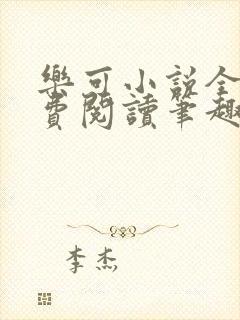 樂可小説全
費閱讀筆趣
李杰